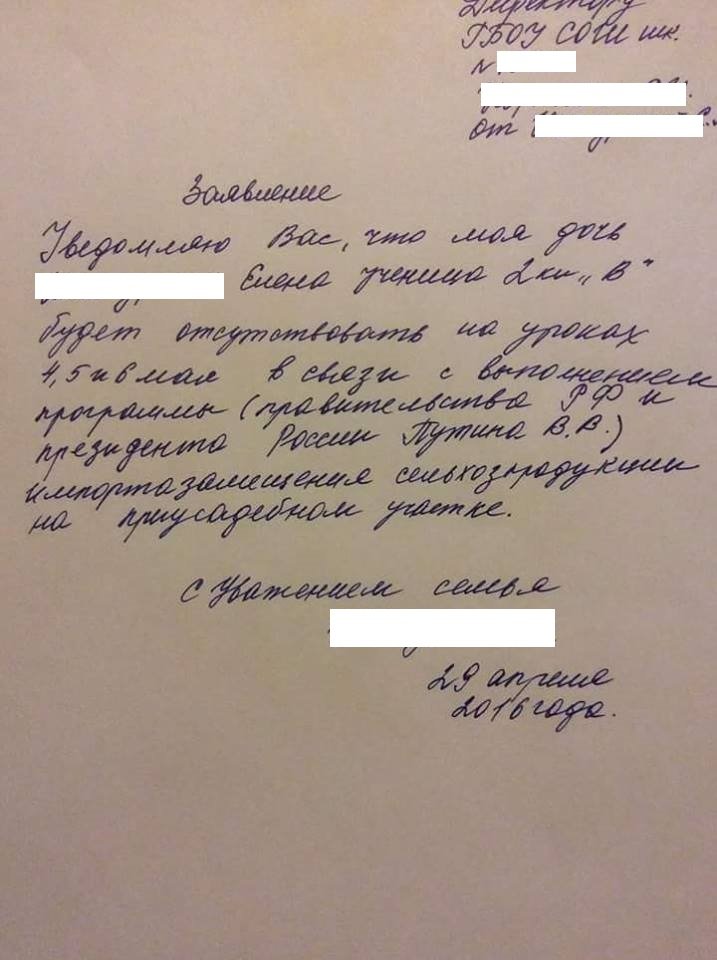 Директору
ГБОУ СОШ шк.
№
от
Заявление
Уведомляю Вас, что моя дочь
Елена ученица 2 кл „В"
будет отсутствовать на уроках
4, 5 и 6 мая в связи с выполнением
программы (правительства РФ и
президента России Путина В.В.)
импортазамещения сельхозпродукции
на приусадебном участке.
С Уважением семья
29 апреля
2016 года.